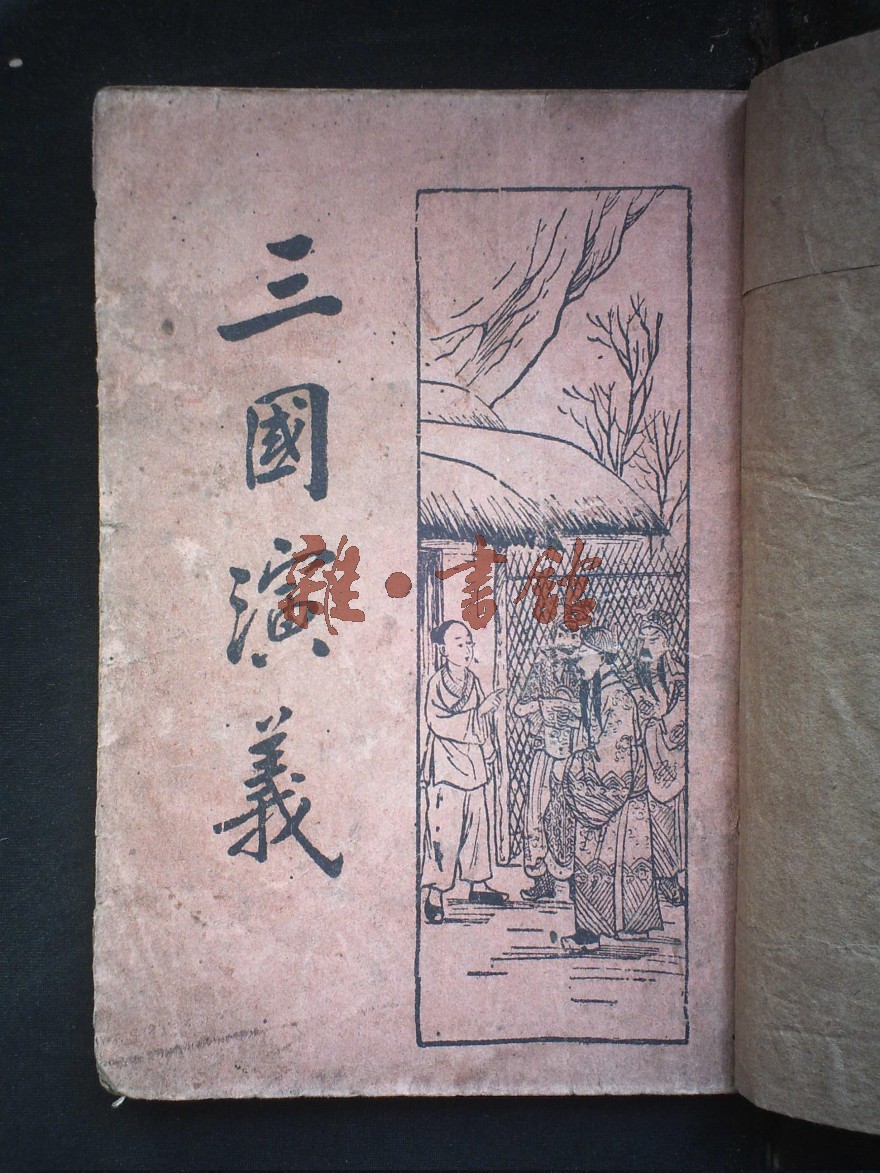 三國演義
雜·書館